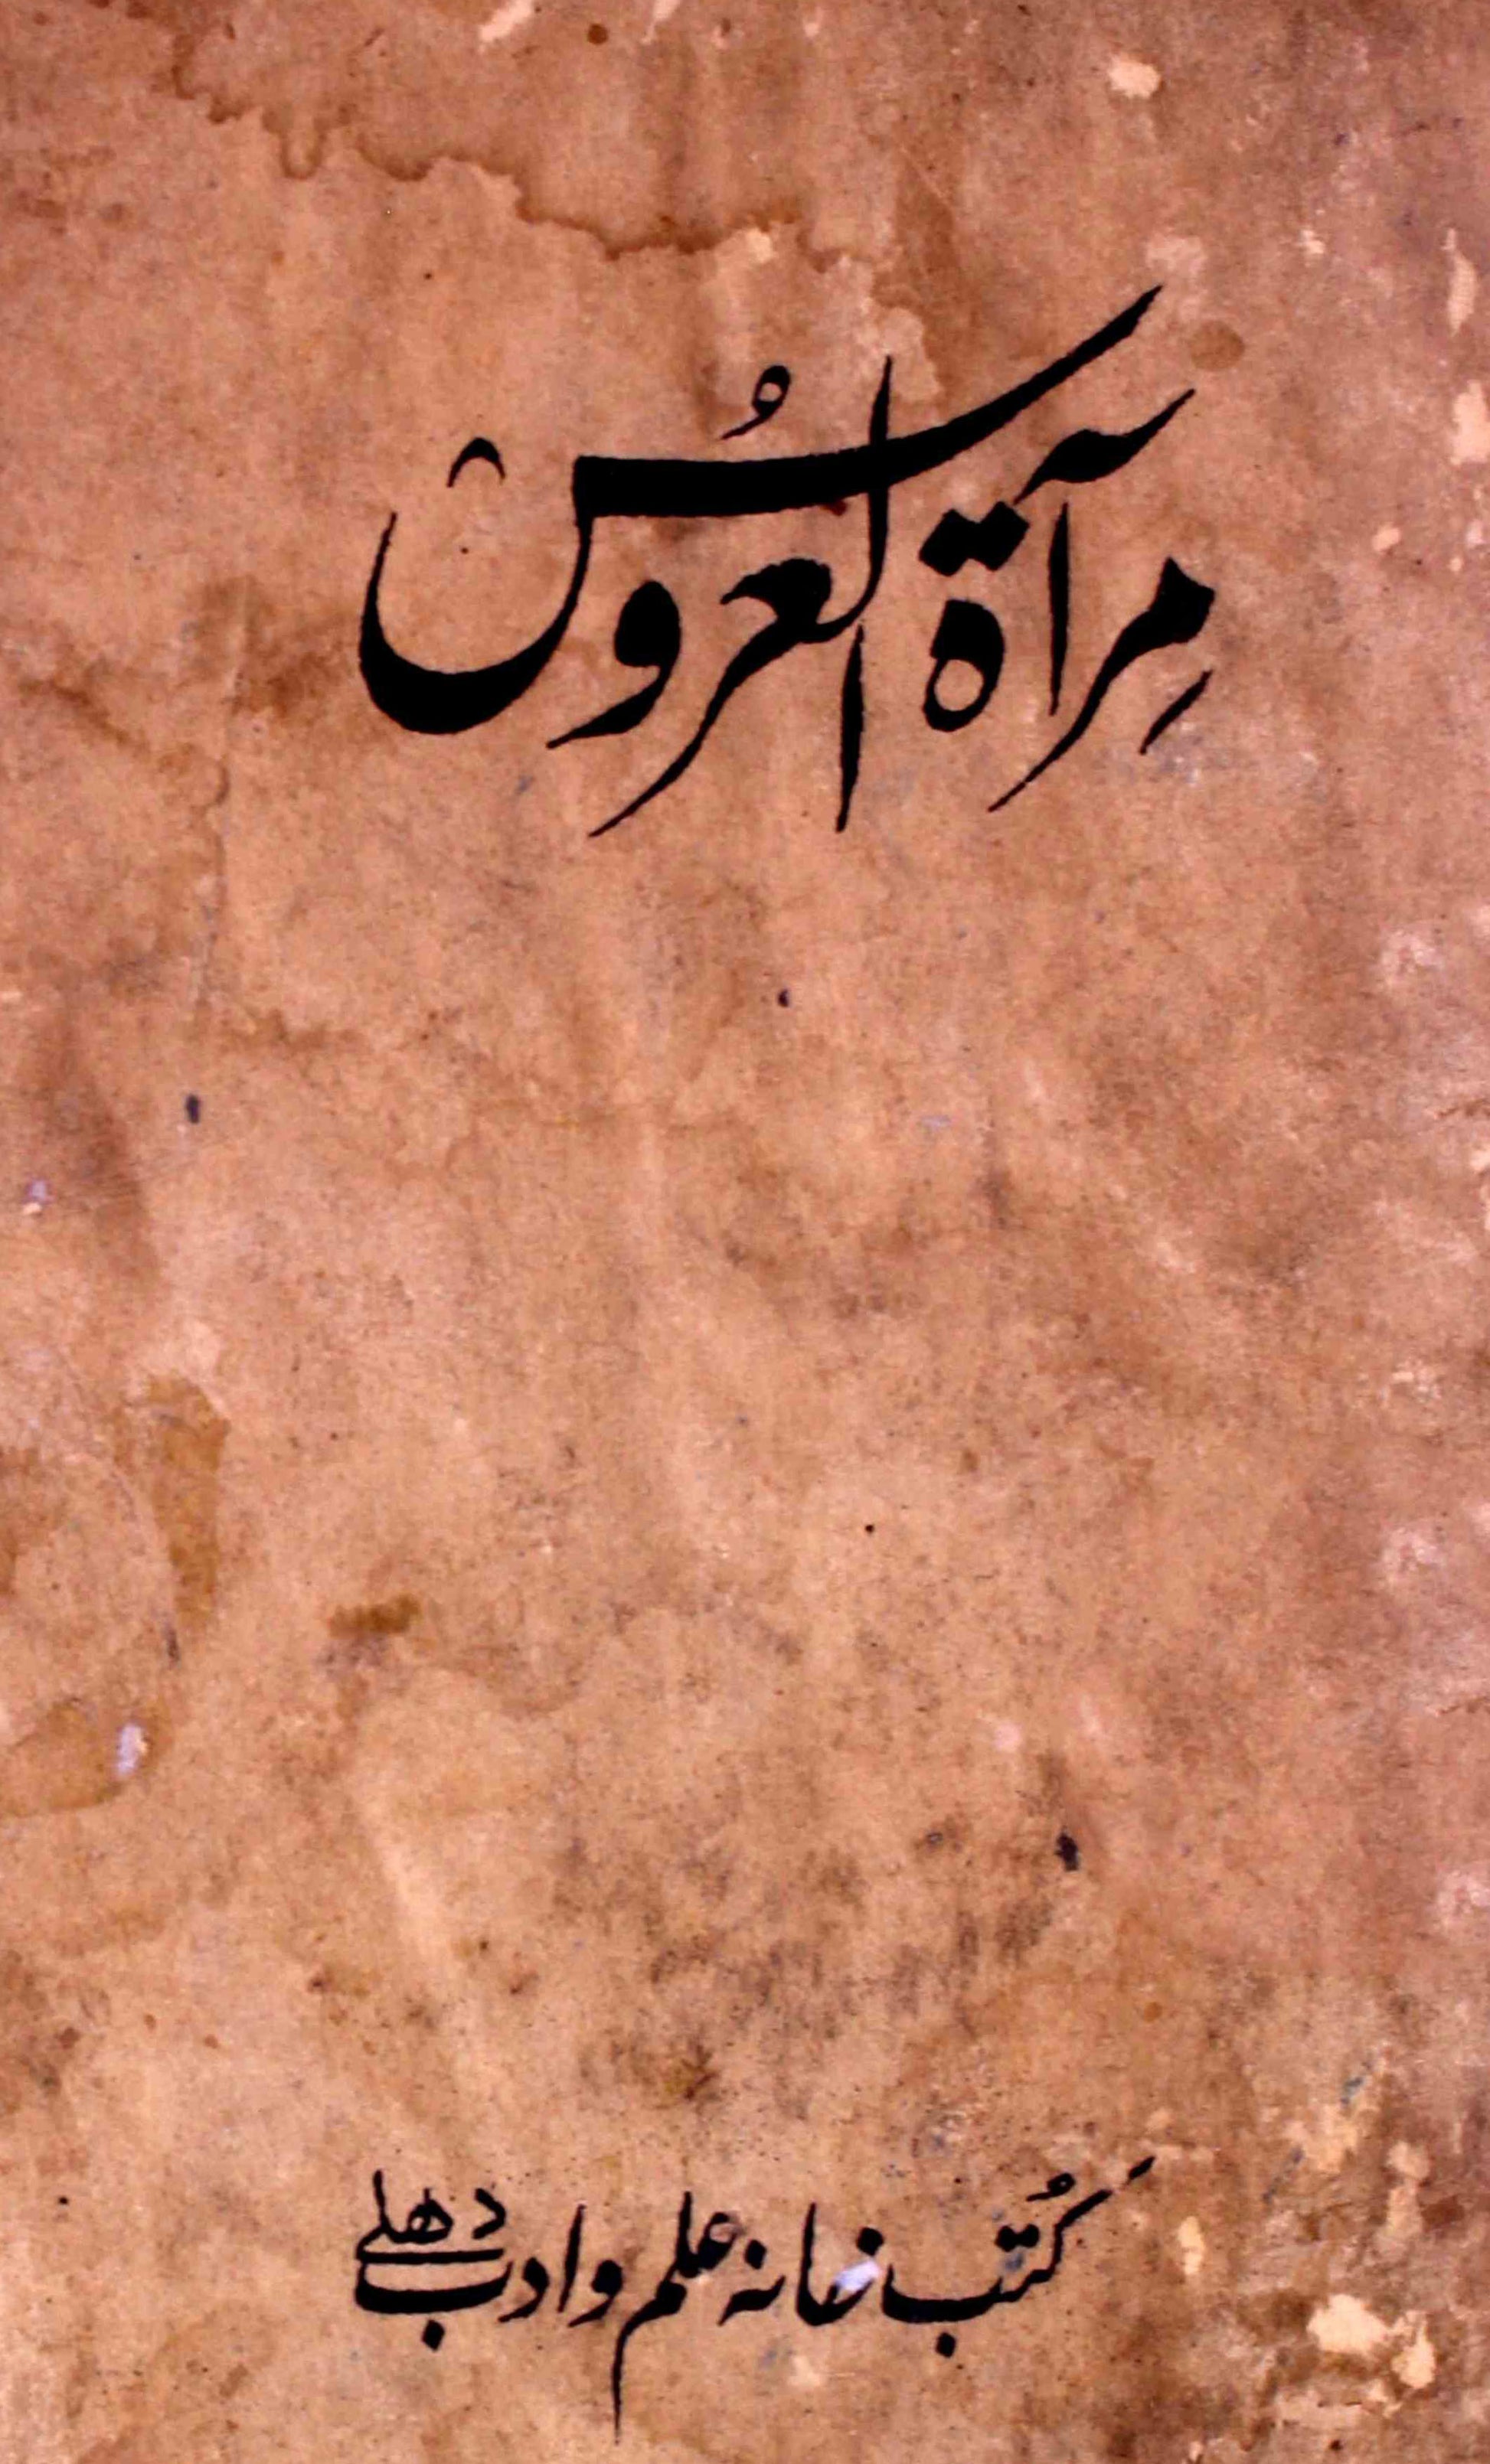 مِرآۃ العروُس
کُتب خانہ علم و ادب دہلی